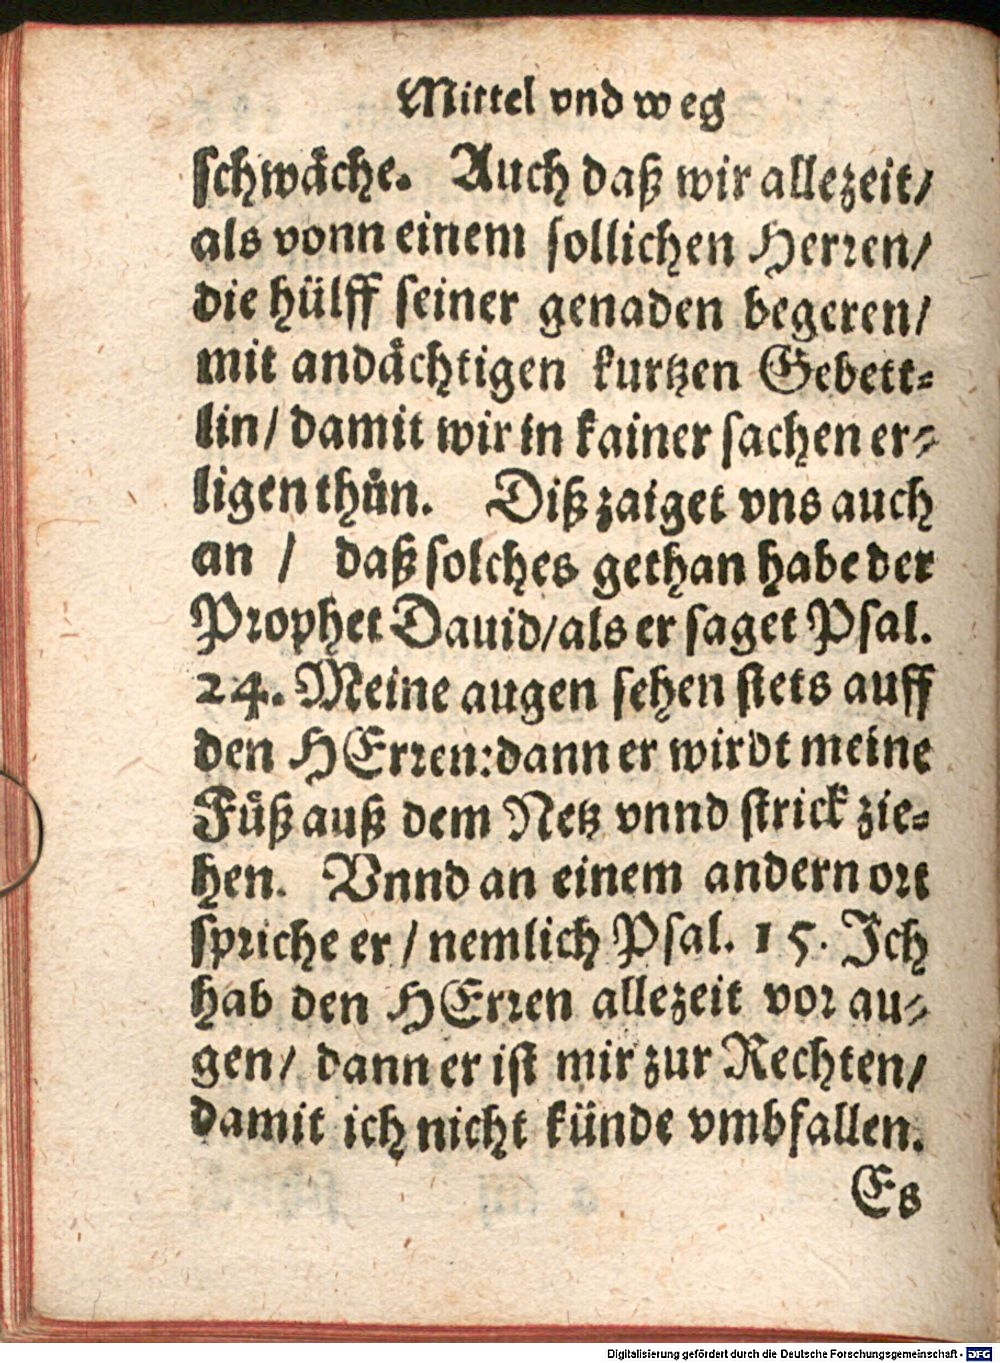 Mittel vnd weg
schwäche. Auch daß wir allezeit/
als vonn einem sollichen Herren/
die hülff seiner genaden begeren/
mit andächtigen kurtzen Gebett-
lin/ damit wir in kainer sachen er-
ligen thůn. Diß zaiget vns auch
an / daß solches gethan habe der
Prophet Dauid/als er saget Psal.
24. Meine augen sehen stets auff
den HErren:dann er wirdt meine
Füß auß dem Netz vnnd strick zie-
hen. Vnnd an einem andern ort
spriche er/ nemlich Psal. 15. Ich
hab den HErren allezeit vor au-
gen/ dann er ist mir zur Rechten/
damit ich nicht künde vmbfallen.
Es
Digitalisierung gefördert durch die Deutsche Forschungsgemeinschaft - DFG